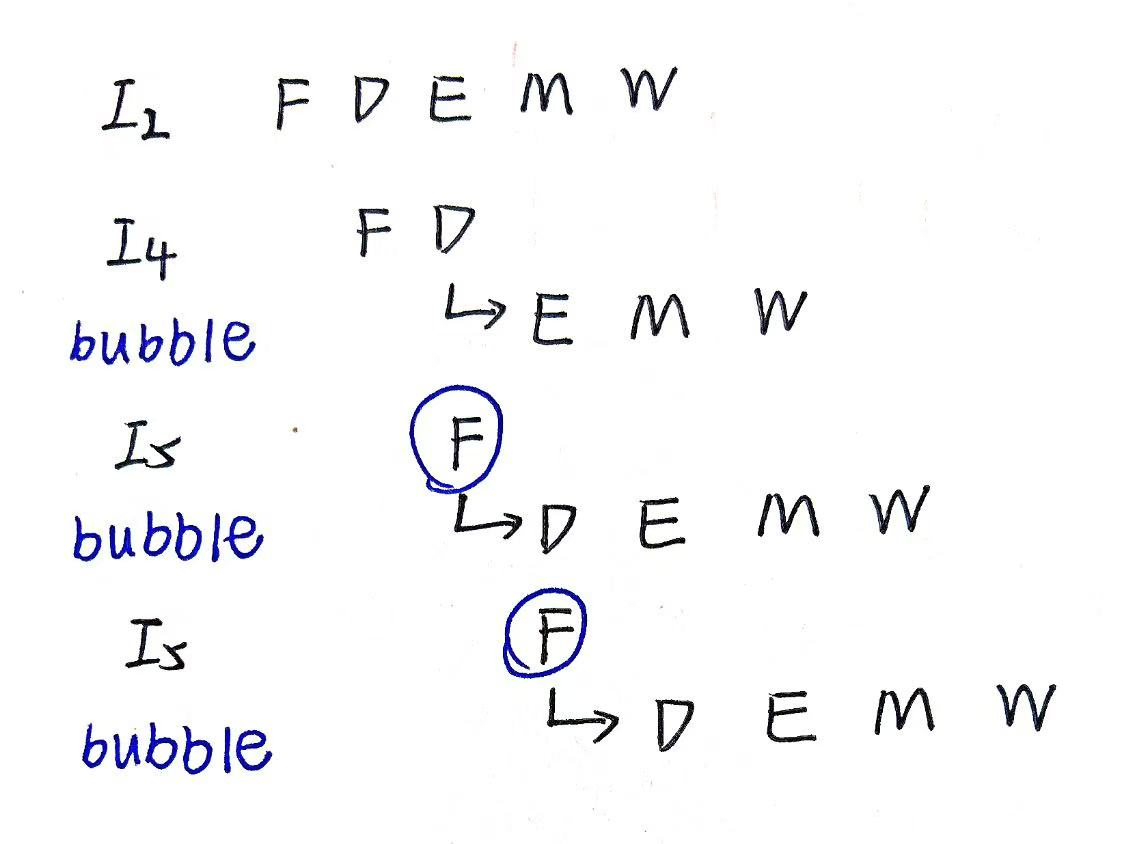 I2 F D E M W
I4 F D
bubble ↳ E M W
I5 F
bubble ↳ D E M W
I5 F
bubble ↳ D E M W